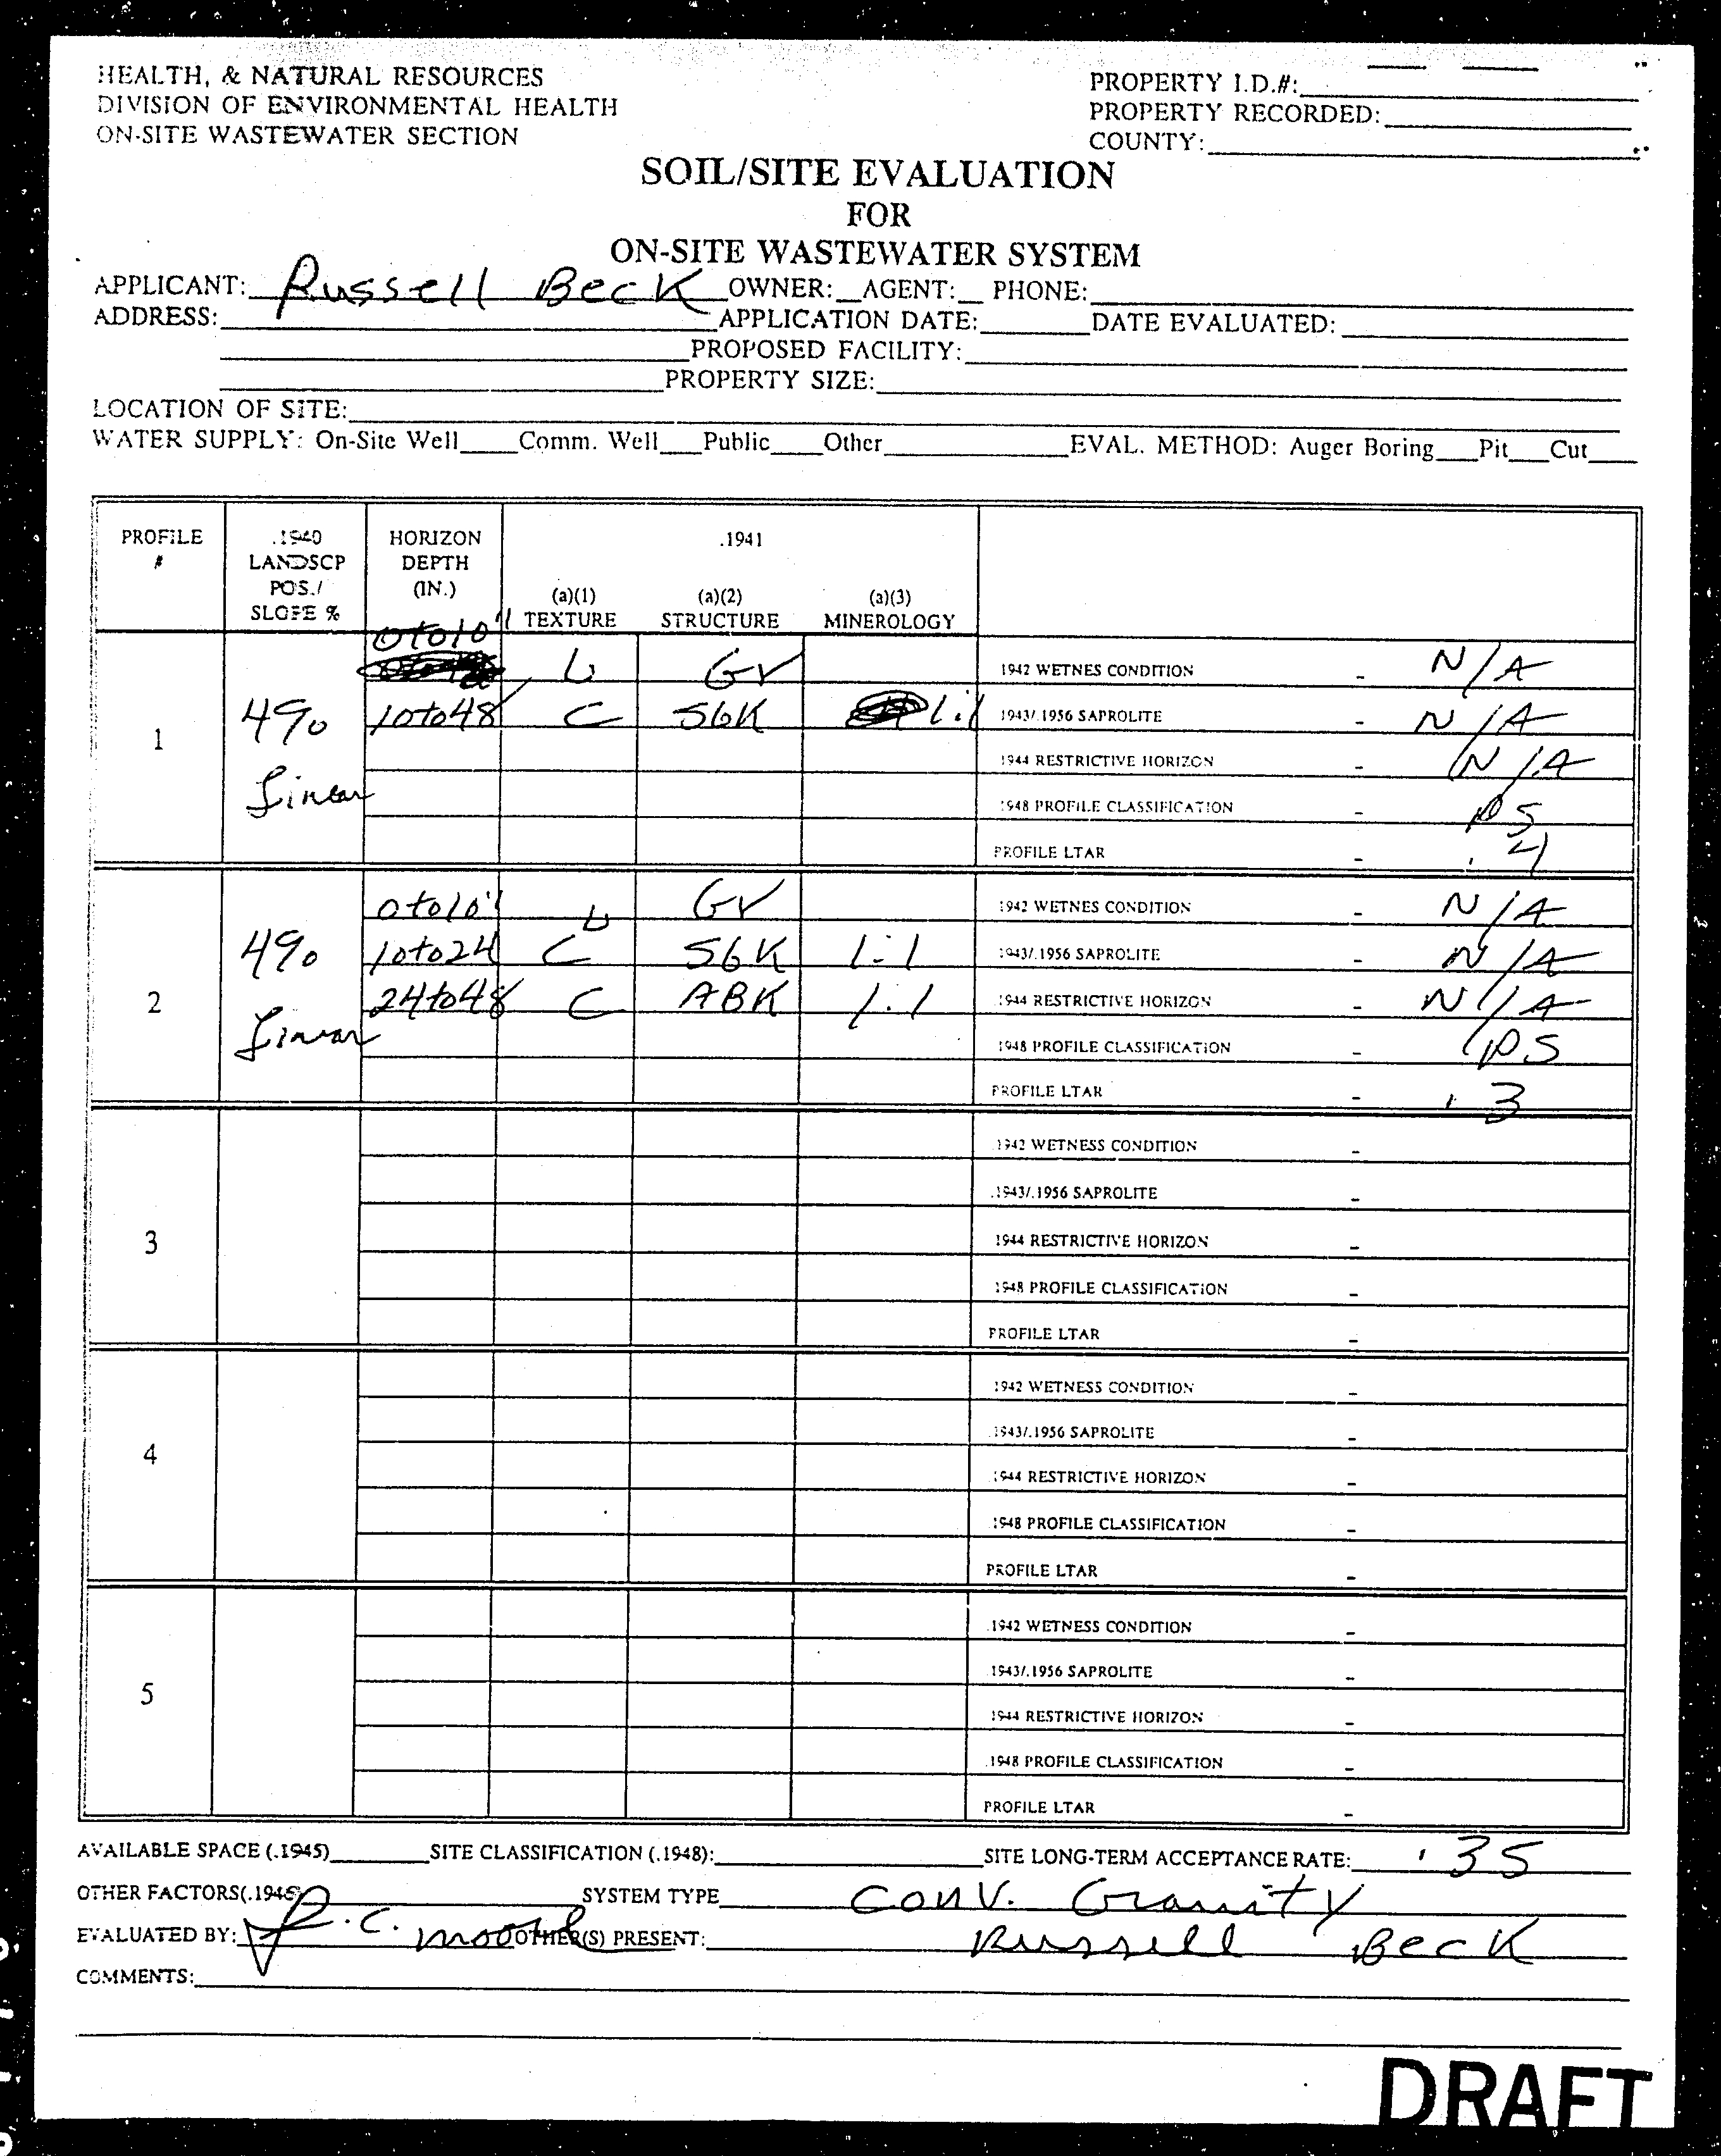 HEALTH, & NATURAL RESOURCES
DIVISION OF ENVIRONMENTAL HEALTH
ON-SITE WASTEWATER SECTION
PROPERTY I.D.#:
PROPERTY RECORDED:
COUNTY:
SOIL/SITE EVALUATION
FOR
ON-SITE WASTEWATER SYSTEM
APPLICANT: Russell Beck OWNER: AGENT: PHONE:
ADDRESS: APPLICATION DATE: DATE EVALUATED:
PROPOSED FACILITY:
PROPERTY SIZE:
LOCATION OF SITE:
WATER SUPPLY: On-Site Well Comm. Well Public Other EVAL. METHOD: Auger Boring Pit Cut
PROFILE # .1940 LANDSCP POS./ SLOPE % HORIZON DEPTH (IN.) .1941
(a)(1) TEXTURE (a)(2) STRUCTURE (a)(3) MINEROLOGY
0to10"
L Gr 1942 WETNES CONDITION - N/A
1 4% 10to48 C SBK 1:1 1943/.1956 SAPROLITE - N/A
1944 RESTRICTIVE HORIZON - N/A
Linear 1948 PROFILE CLASSIFICATION - PS
PROFILE LTAR - .4
0to10" L Gr 1942 WETNES CONDITION - N/A
4% 10to24 C SBK 1:1 1943/.1956 SAPROLITE - N/A
2 24to48 C ABK 1:1 1944 RESTRICTIVE HORIZON - N/A
Linear 1948 PROFILE CLASSIFICATION - PS
PROFILE LTAR - .3
.1942 WETNESS CONDITION -
.1943/.1956 SAPROLITE -
3 1944 RESTRICTIVE HORIZON -
1948 PROFILE CLASSIFICATION -
PROFILE LTAR -
1942 WETNESS CONDITION -
.1943/.1956 SAPROLITE -
4 1944 RESTRICTIVE HORIZON -
1948 PROFILE CLASSIFICATION -
PROFILE LTAR -
.1942 WETNESS CONDITION -
1943/.1956 SAPROLITE -
5 1944 RESTRICTIVE HORIZON -
.1948 PROFILE CLASSIFICATION -
PROFILE LTAR -
AVAILABLE SPACE (.1945) SITE CLASSIFICATION (.1948): SITE LONG-TERM ACCEPTANCE RATE: .35
OTHER FACTORS(.1946) SYSTEM TYPE Conv. Gravity
EVALUATED BY: R.C. OTHER(S) PRESENT: Russell Beck
COMMENTS:
DRAFT